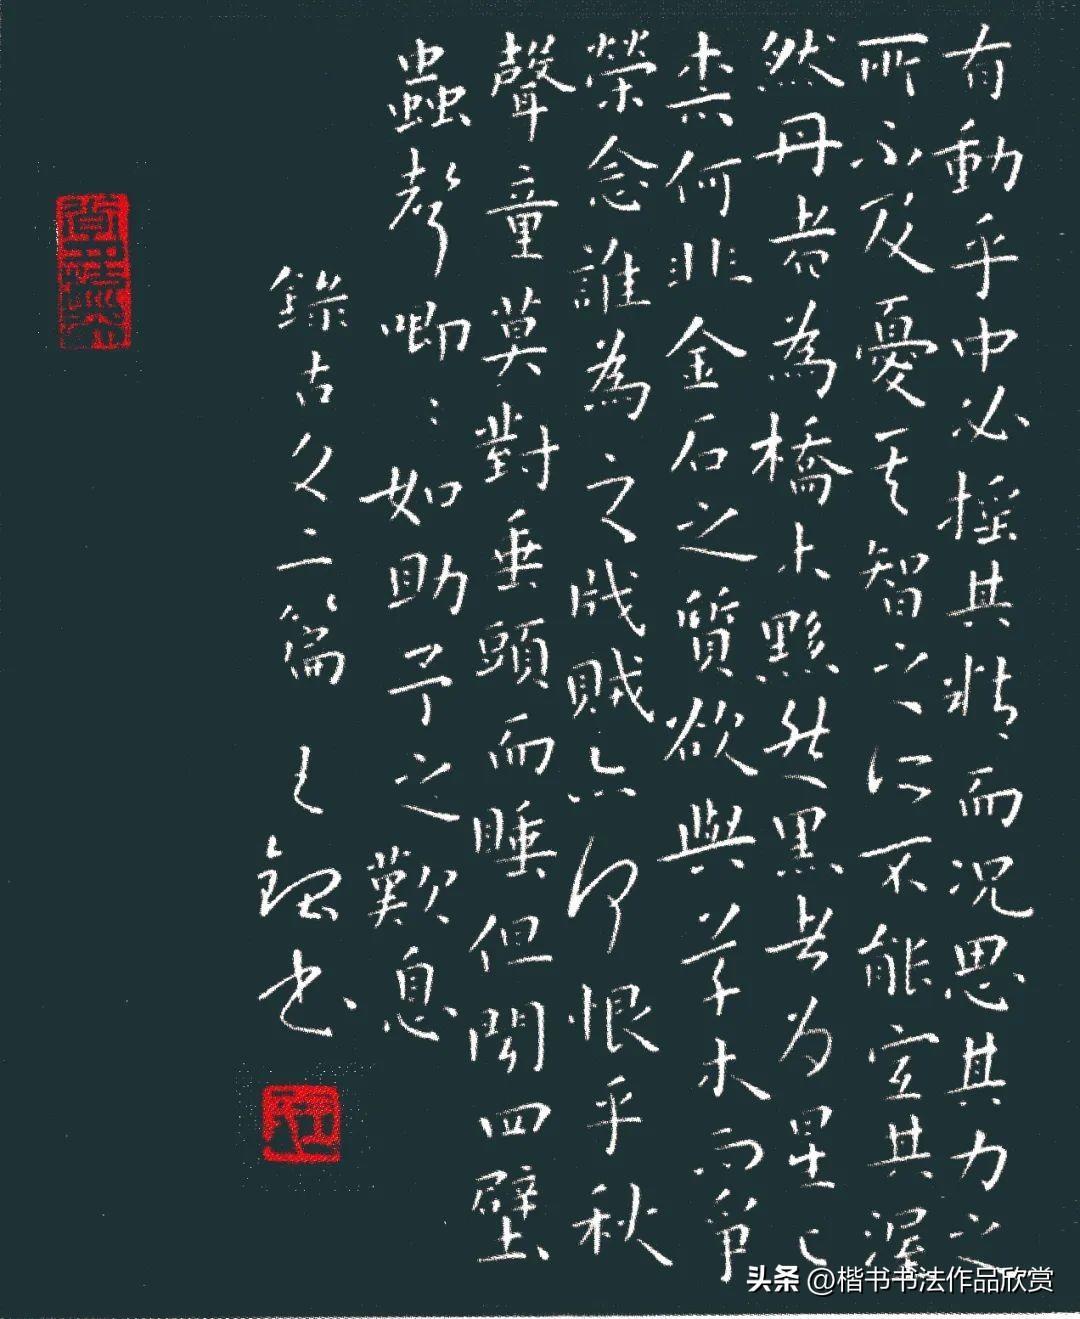 有動乎中必摇其精而況思其力之
所不及憂其智之所不能宜其渥
然丹者為橋木黟然黑者为星〻
柰何非金石之質欲與草木而争
榮念誰為之戕賊亦何恨乎秋
聲童莫對垂頭而睡但聞四壁
蟲聲唧〻如助予之歎息
錄古文二篇
头条 @楷书书法作品欣赏